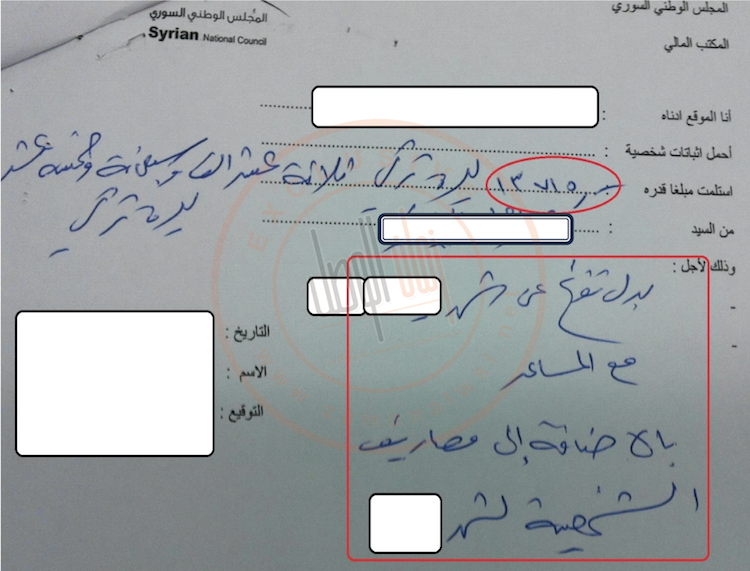 المجلس الوطني السوري
Syrian National Council
المجلس الوطني السوري
المكتب المالي
أنا الموقع ادناه :
أحمل اثباتات شخصية :
استلمت مبلغا قدره ١٣٧١٥ ليرة تركي ثلاثة عشر الفا و سبعمائة وخمسة عشر
ليرة تركي
من السيد :
وذلك لأجل :
بدل تفرغ عن شهر
- 
مع المساعد
-
بالاضافة إلى مصاريف
الشخصية لشهر
التاريخ :
الاسم :
التوقيع :